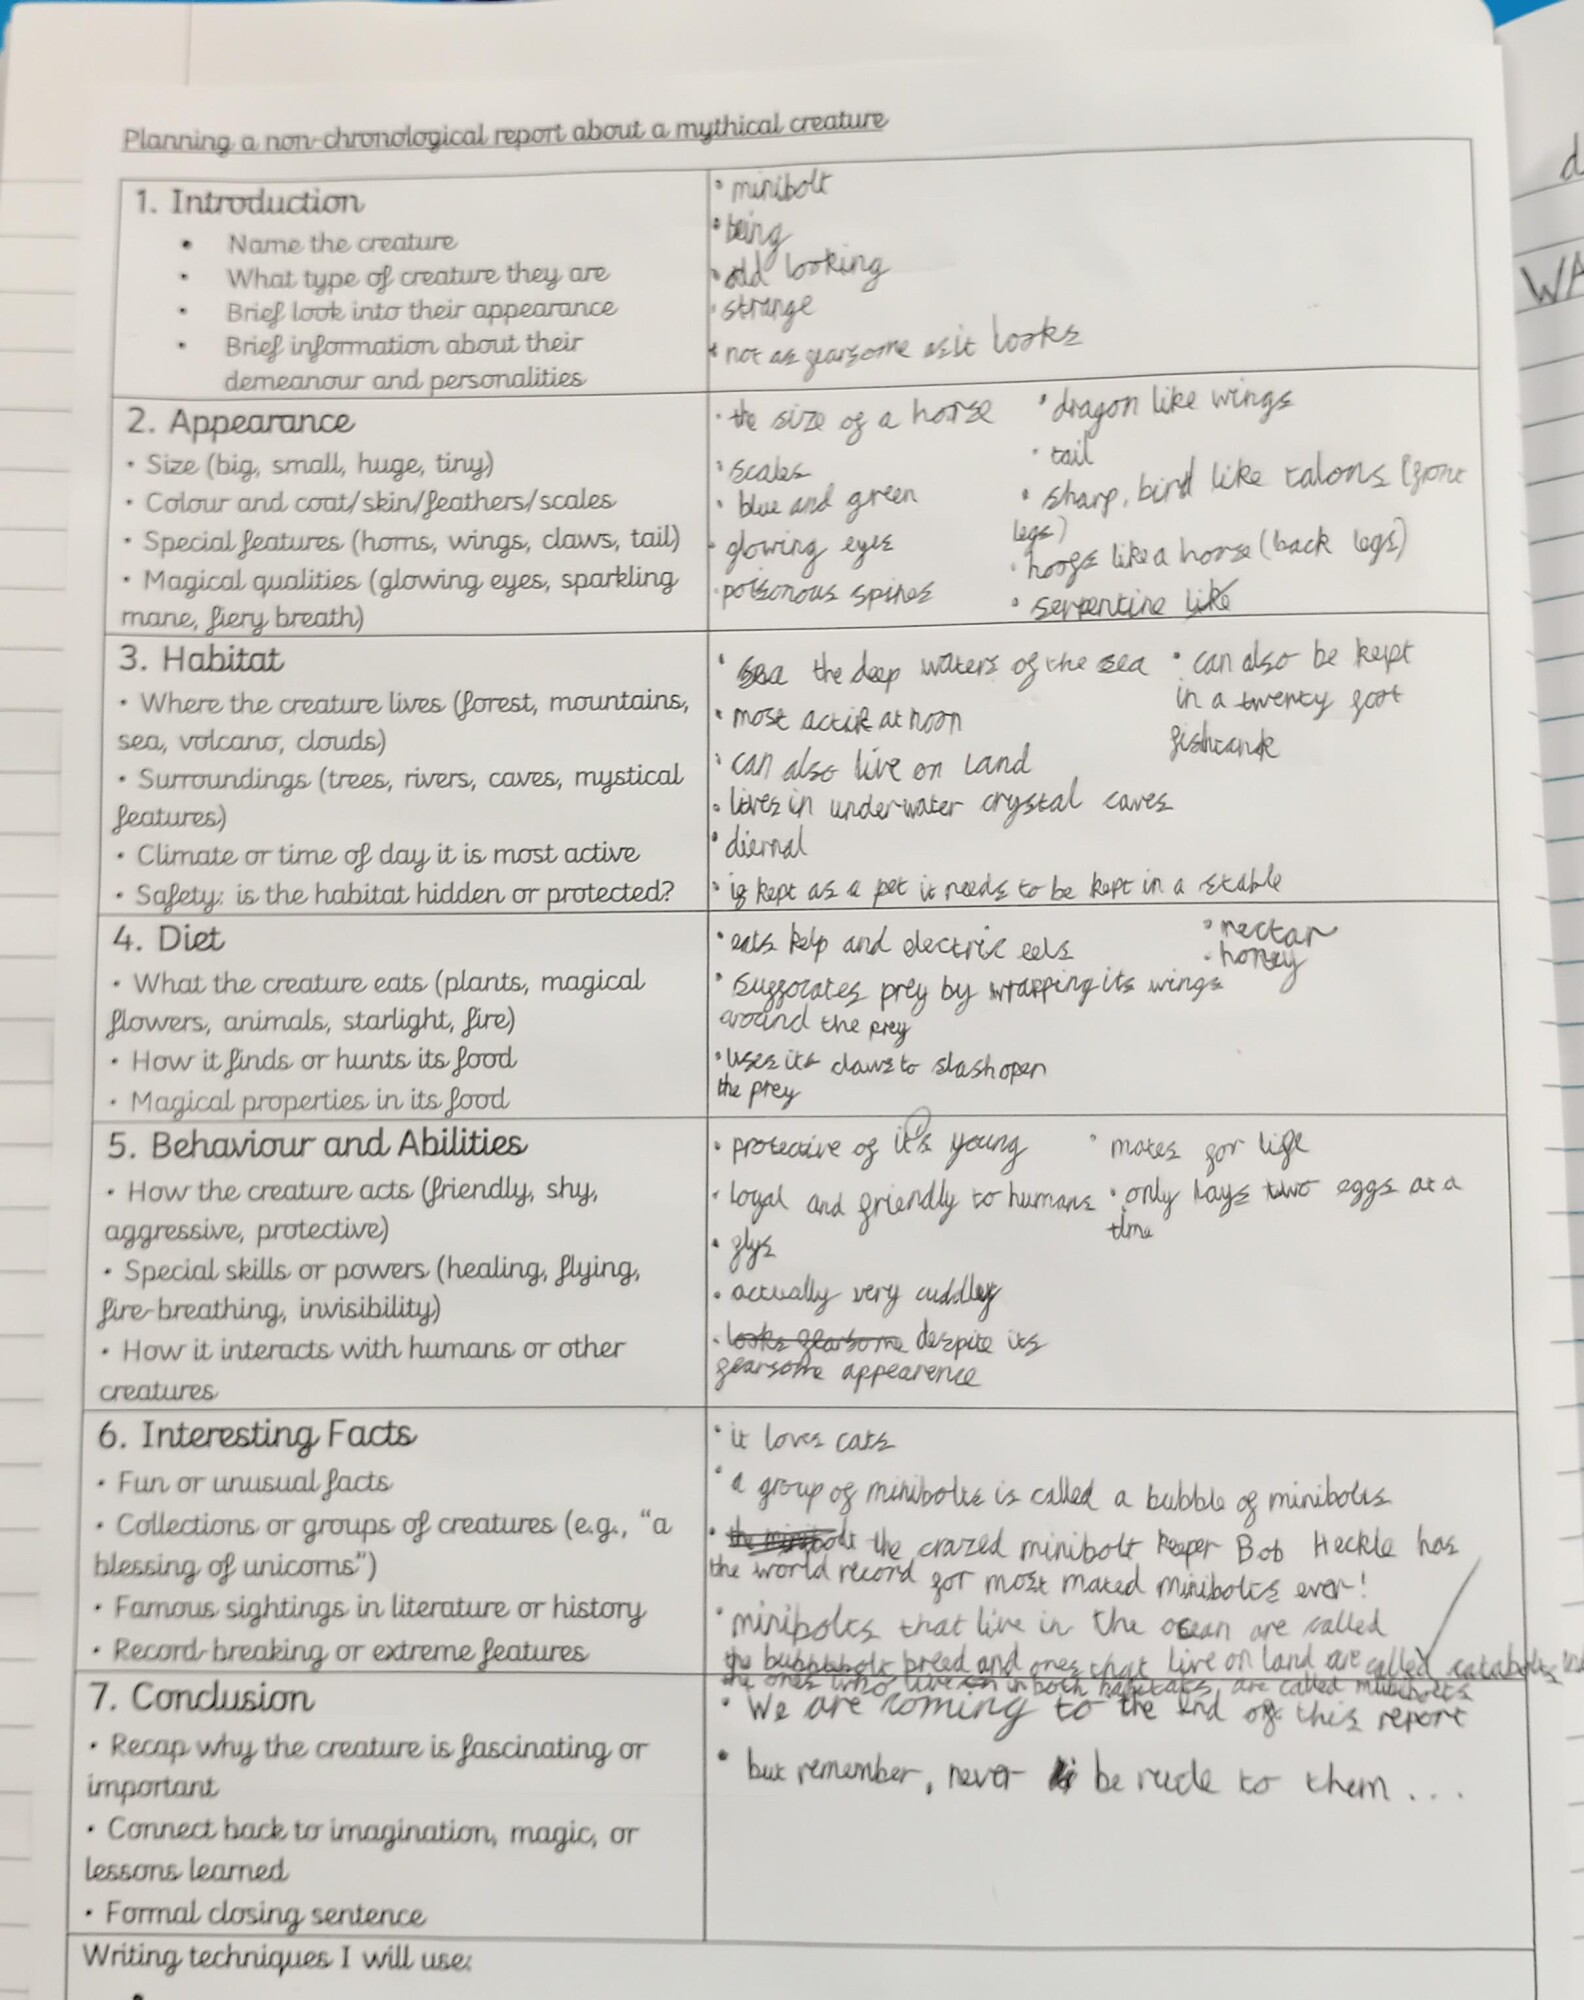 Planning a non-chronological report about a mythical creature
1. Introduction
• Name the creature
• What type of creature they are
• Brief look into their appearance
• Brief information about their
demeanour and personalities
• minibolt
• being
• odd looking
• strange
• not as fearsome as it looks
2. Appearance
• Size (big, small, huge, tiny)
• Colour and coat/skin/feathers/scales
• Special features (horns, wings, claws, tail)
• Magical qualities (glowing eyes, sparkling
mane, fiery breath)
• the size of a horse
• scales
• blue and green
• glowing eyes
• poisonous spines
• dragon like wings
• tail
• sharp, bird like talons (front
legs)
• hoofs like a horse (back legs)
• serpentine like
3. Habitat
• Where the creature lives (forest, mountains,
sea, volcano, clouds)
• Surroundings (trees, rivers, caves, mystical
features)
• Climate or time of day it is most active
• Safety: is the habitat hidden or protected?
• sea the deep waters of the sea
• most active at noon
• can also live on land
• lives in underwater crystal caves
• diernal
• if kept as a pet it needs to be kept in a stable
• can also be kept
in a twenty foot
fishtank
4. Diet
• What the creature eats (plants, magical
flowers, animals, starlight, fire)
• How it finds or hunts its food
• Magical properties in its food
• eats kelp and electric eels
• Suffocates prey by wrapping its wings
around the prey
• uses its claws to slash open
the prey
• nectar
• honey
5. Behaviour and Abilities
• How the creature acts (friendly, shy,
aggressive, protective)
• Special skills or powers (healing, flying,
fire-breathing, invisibility)
• How it interacts with humans or other
creatures
• protective of it's young
• loyal and friendly to humans
• flys
• actually very cuddley
• looks fearsome despite its
fearsome appearence
• mates for life
• only lays two eggs at a
time
6. Interesting Facts
• Fun or unusual facts
• Collections or groups of creatures (e.g., "a
blessing of unicorns")
• Famous sightings in literature or history
• Record-breaking or extreme features
• it loves cats
• a group of minibolts is called a bubble of minibolts
• the minibolt the crazed minibolt keeper Bob Heckle has
the world record for most mated minibolts ever!
• minibolts that live in the ocean are called
the bubbbbolt breed and ones that live on land are called catabolts
the ones who live in both habitats, are called minibolts
7. Conclusion
• Recap why the creature is fascinating or
important
• Connect back to imagination, magic, or
lessons learned
• Formal closing sentence
• We are coming to the end of this report
• but remember, never be rude to them...
Writing techniques I will use:
d
WA